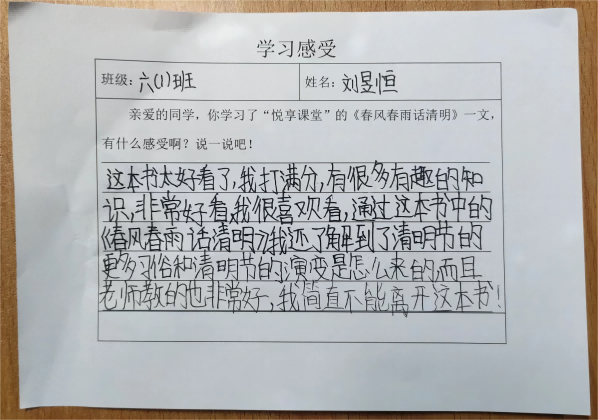 学习感受
班级：六(1)班 姓名：刘昱恒
亲爱的同学，你学习了“悦享课堂”的《春风春雨话清明》一文，
有什么感受啊？说一说吧！
这本书太好看了，我打满分，有很多有趣的知
识，非常好看，我很喜欢看，通过这本书中的
《春风春雨话清明》，我还了解到了清明节的
更多习俗和清明节的演变是怎么来的，而且
老师教的也非常好，我简直不能离开这本书！